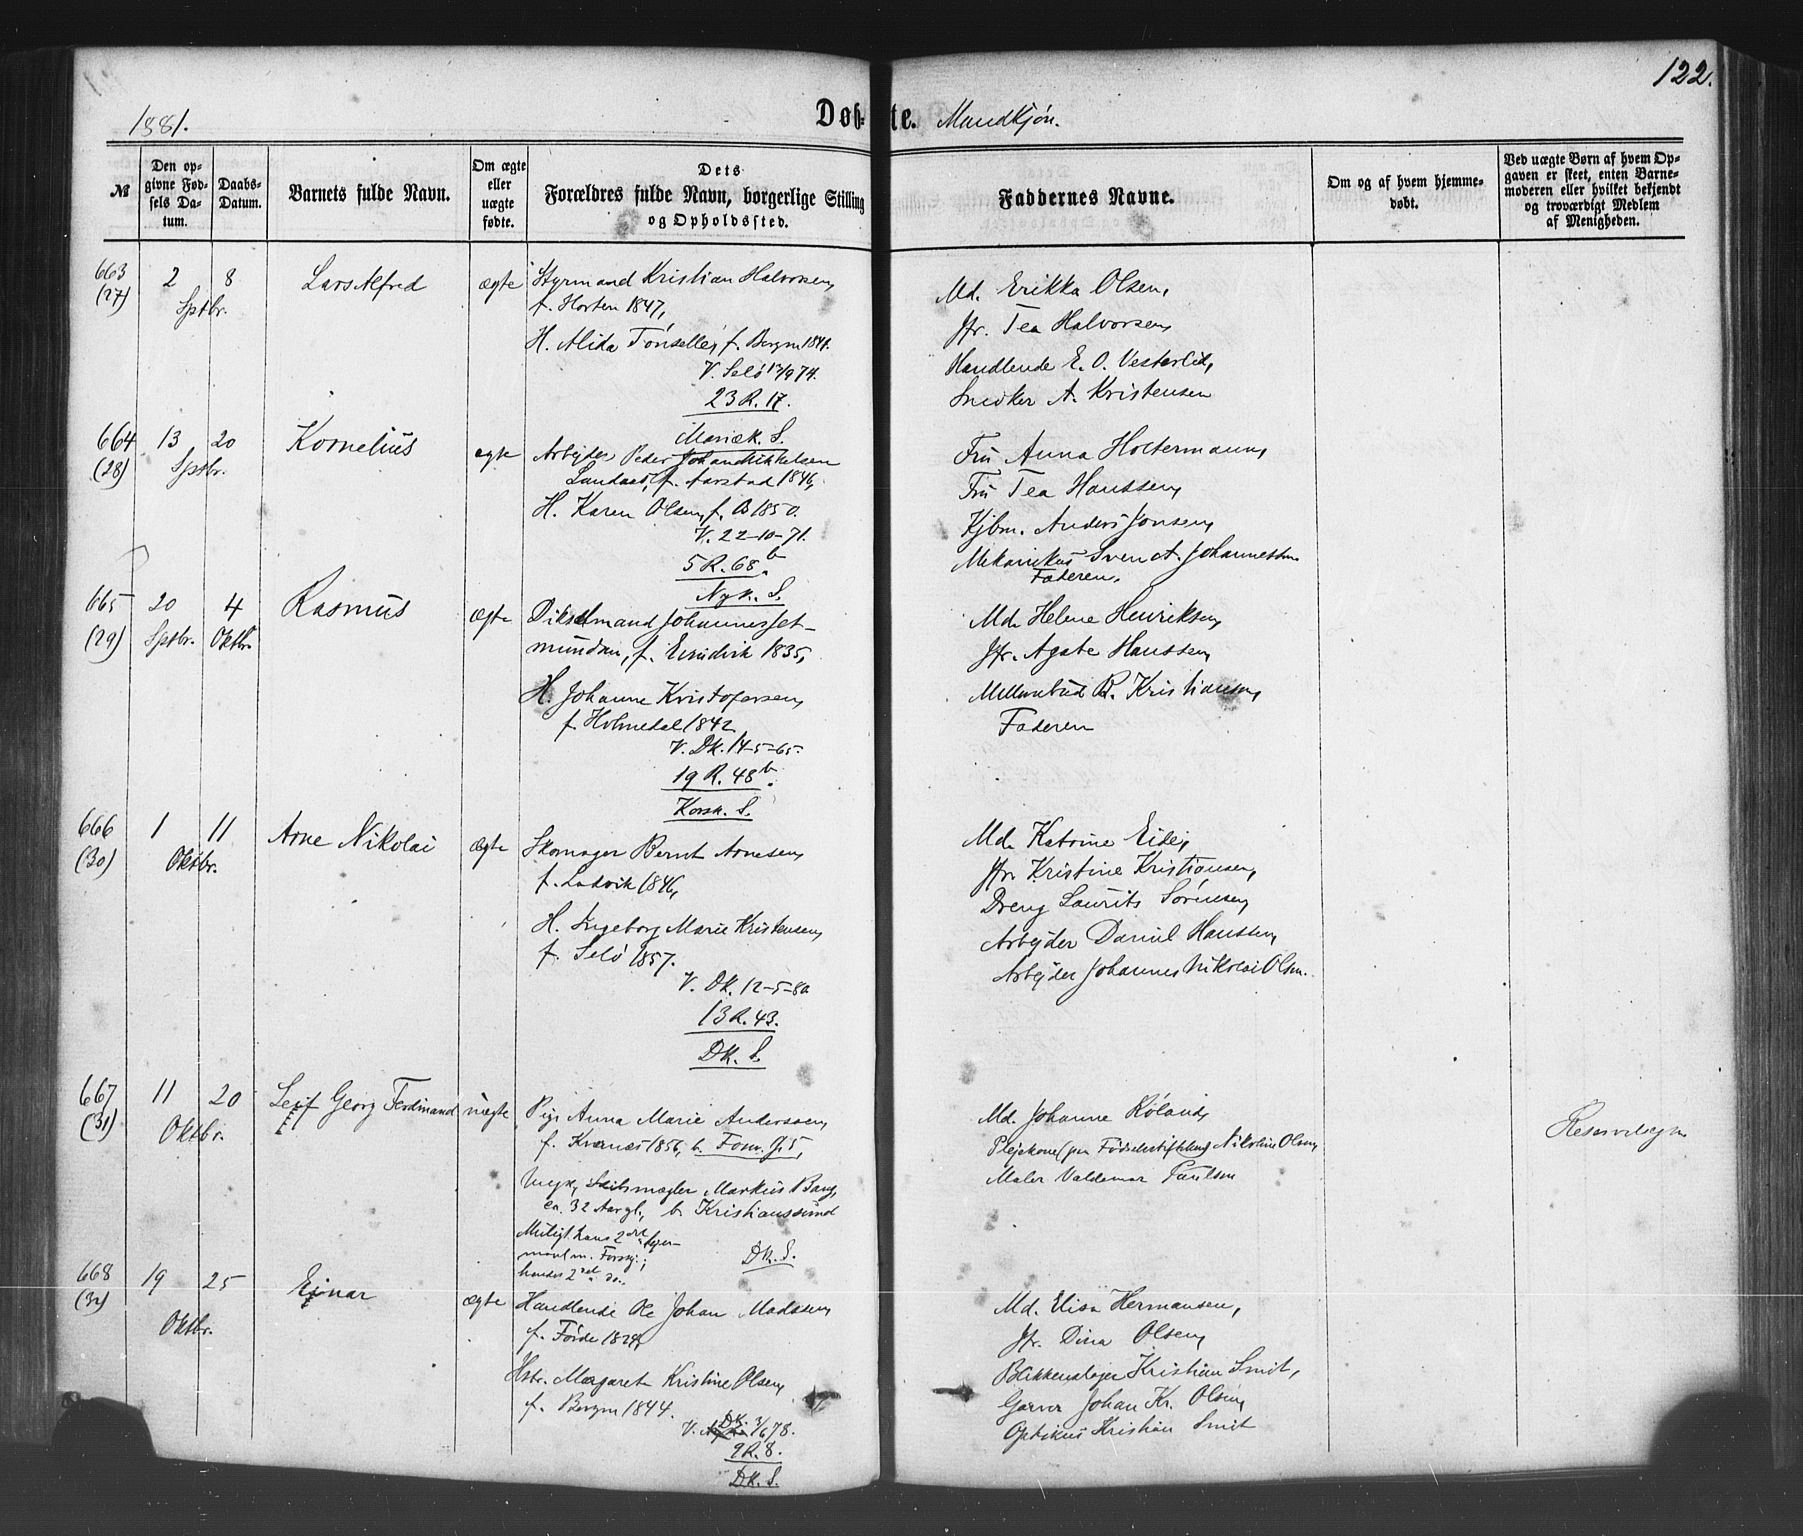 122.
1881.
Døbte. Mandkjøn.
№
Den opgivne Fødsels Datum.
Daabs-Datum.
Barnets fulde Navn.
Om ægte eller uægte fødte.
Dets Forældres fulde Navn, borgerlige Stilling og Opholdssted.
Faddernes Navne.
Om og af hvem hjemmedøbt.
Ved uægte Børn af hvem Opgaven er skeet, enten Barnemoderen eller hvilket bekjendt og troværdigt Medlem af Menigheden.
663 (27) 2 8 Sptbr. Lars Alfred ægte
Styrmand Kristian Halvorsen,
f. Horten 1847,
H. Alida Tønselle, f. Bergen 1841.
V. Selö 13/9 74.
23 R. 17.
Mariæk. S.
Md. Erikka Olsen,
Jfr. Tea Halvorsen,
Handlende E. O. Vesterlid,
Snedker A. Kristensen
664 (28) 13 20 Sptbr. Kornelius ægte
Arbejder Peder Johan Mikkelsen
Landaas, f. Aarstad 1846,
H. Karen Olsen, f. B 1850.
V. 22-10-71.
5 R. 68 b.
Nyk. S.
Fru Anna Holtermann,
Fru Tea Hanssen,
Kjbm. Anders Jonsen,
Mekanikus Svend A. Johannessen
Faderen.
665 (29) 20 Sptbr. 4 Oktbr. Rasmus ægte
Dikselmand Johannes Jet-
mundsen, f. Evindvik 1835,
H. Johanne Kristofersen,
f. Holmedal 1842
V. DK. 14-5-65.
19 R. 48 b.
Korsk. S.
Md. Helene Henriksen,
Jfr. Agate Hanssen,
R. Kristiansen,
Faderen
666 (30) 1 11 Oktbr. Arne Nikolai ægte
Skomager Bernt Arnesen,
f. Ladvik 1846,
H. Ingeborg Marie Kristensen,
f. Selö 1857.
V. DK. 12-5-80
13 R. 43.
DK. S.
Md. Katrine Eide,
Jfr. Kristine Kristiansen,
Dreng Laurits Sørensen,
Arbejder Daniel Hanssen,
Arbejder Johannes Nikolai Olsen.
667 (31) 11 20 Oktbr. Leif Georg Ferdinand uægte
Pige Anna Marie Anderssen,
f. Kværnes 1856, b.
Ungk, Markus Bang,
ca. 32 Aar gl., b. Kristianssund
Muligt hans 2det Lejer-
maal m. Forskj.;
hendes 2det do.
DK. S.
Md. Johanne Røland,
Plejekone paa Fødselsstiftelsen Nikoline Olsen,
Maler Valdemar Paulsen
668 (32) 19 25 Oktbr. Einar ægte
Handlende Ole Johan Madssen,
f. Førde 1824,
Hstr. Margarete Kristine Olsen,
f. Bergen 1844.
V. DK. 3/6 78.
9 R. 8.
DK. S.
Md. Elisa Hermansen,
Jfr. Dina Olsen,
Blikkenslager Kristian Smit,
Garver Johan Kr. Olsen,
Optikus Kristian Smit